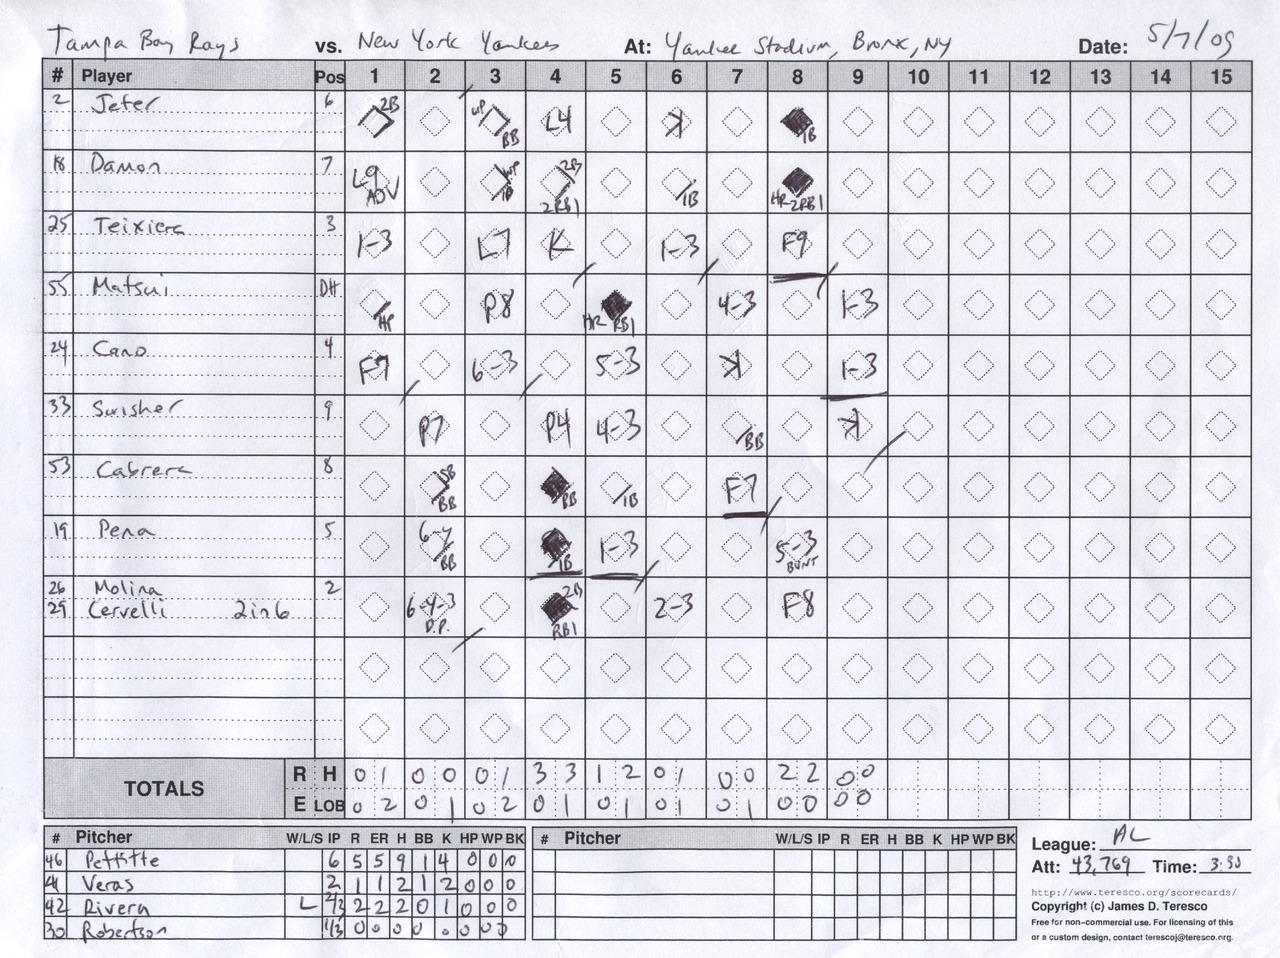 Tampa Bay Rays vs. New York Yankees At: Yankee Stadium, Bronx, NY Date: 5/7/09
# Player Pos 1 2 3 4 5 6 7 8 9 10 11 12 13 14 15
2 Jeter 6 2B WP BB L4 K 1B
18 Damon 7 L9 ADV WP 1B 2B 2RBI 1B HR 2RBI
25 Teixiera 3 1-3 L7 K 1-3 F9
55 Matsui DH HP P8 HR RBI 4-3 1-3
24 Cano 4 F7 6-3 5-3 K 1-3
33 Swisher 9 P7 P4 4-3 BB K
53 Cabrera 8 SB BB BB 1B F7
19 Pena 5 6-4 BB 1B 1-3 5-3 BUNT
26 Molina 2 6-4-3 D.P. 2B RBI 2-3 F8
29 Cervelli 2in6
TOTALS R H 0 1 0 0 0 1 3 3 1 2 0 1 0 0 2 2 0 0
E LOB 0 2 0 1 0 2 0 1 0 1 0 1 0 1 0 0 0 0
# Pitcher W/L/S IP R ER H BB K HP WP BK # Pitcher W/L/S IP R ER H BB K HP WP BK
46 Pettitte 6 5 5 9 1 4 0 0 0
41 Veras 2 1 1 2 1 2 0 0 0
42 Rivera L 2/3 2 2 2 0 1 0 0 0
30 Robertson 1/3 0 0 0 0 0 0 0
League: AL
Att: 43,769 Time: 3:30
http://www.teresco.org/scorecards/
Copyright (c) James D. Teresco
Free for non-commercial use. For licensing of this
or a custom design, contact terescoj@teresco.org.